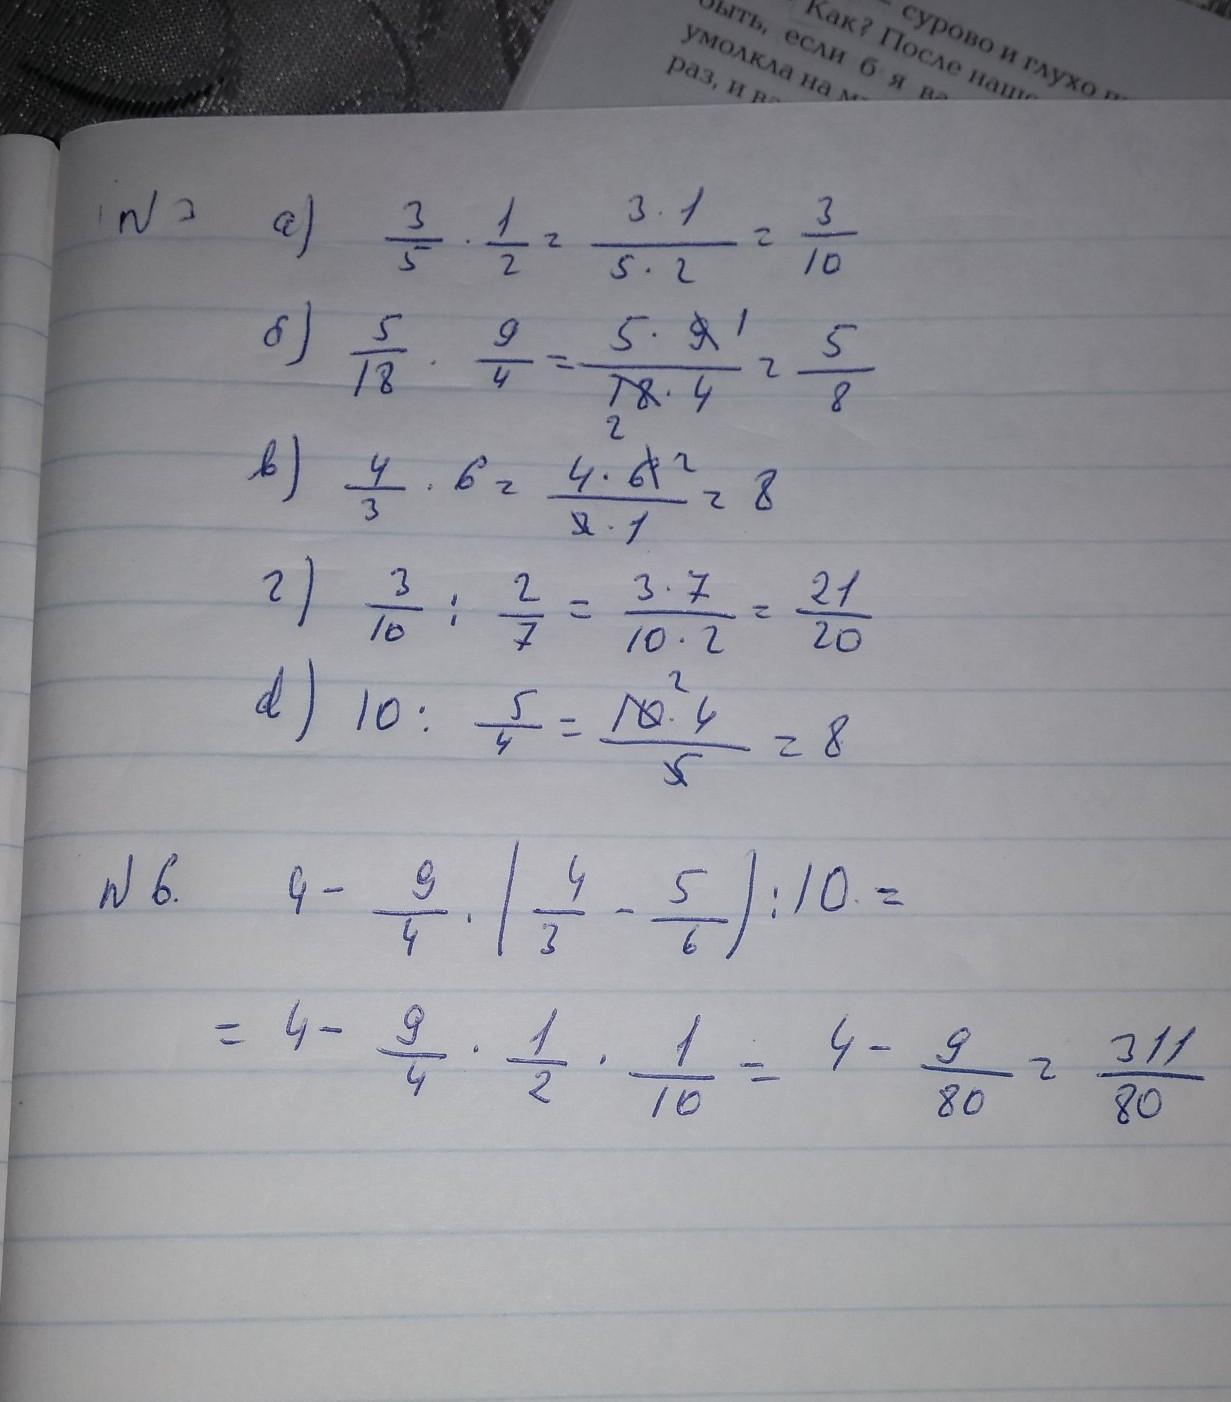 сурово и глухо
Как? После наше
быть, если б я ва
умолкла на м
раз, и ва
N 3 а) 3/5 · 1/2 = 3·1/5·2 = 3/10
б) 5/18 · 9/4 = 5·9 1/18·4 2 = 5/8
в) 4/3 · 6 = 4·6 2/3·1 = 8
г) 3/10 : 2/7 = 3·7/10·2 = 21/20
d) 10 : 5/4 = 10 2·4/5 = 8
N 6. 4 - 9/4 · (4/3 - 5/6) : 10. =
= 4 - 9/4 · 1/2 · 1/10 = 4 - 9/80 = 311/80